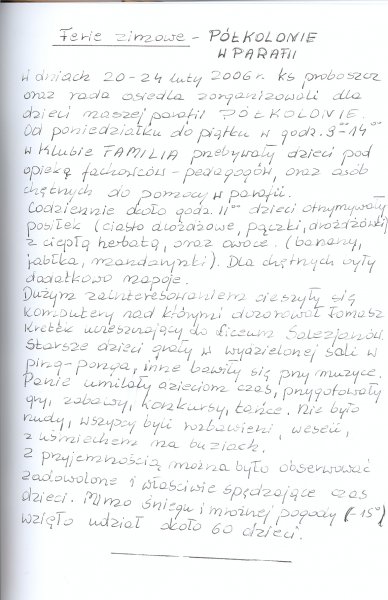 Ferie zimowe - PÓŁKOLONIE
W PARAFII
W dniach 20-24 luty 2006 r. ks proboszcz
oraz rada osiedla zorganizowali dla
dzieci naszej parafii PÓŁKOLONIE.
Od poniedziałku do piątku w godz. 9⁰⁰-14⁰⁰
w Klubie FAMILIA przebywały dzieci pod
opieką fachowców - pedagogów, oraz osób
chętnych do pomocy w parafii.
Codziennie około godz. 11⁰⁰ dzieci otrzymywały
posiłek (ciasto drożdżowe, pączki, drożdżówki
z ciepłą herbatą, oraz owoce. (banany,
jabłka, mandarynki). Dla chętnych były
dodatkowo napoje.
Dużym zainteresowaniem cieszyły się
komputery nad którymi dozorował Tomasz
Kretek uczęszczający do Liceum Salezjanów.
Starsze dzieci grały w wydzielonej sali w
ping-ponga, inne bawiły się przy muzyce.
Panie umilały dzieciom czas, przygotowały
gry, zabawy, konkursy, tańce. Nie było
nudy, wszyscy byli rozbawieni, weseli,
z uśmiechem na buziach.
Z przyjemnością można było obserwować
zadowolone i właściwie spędzające czas
dzieci. Mimo śniegu i mroźnej pogody (-15°)
wzięło udział około 60 dzieci.